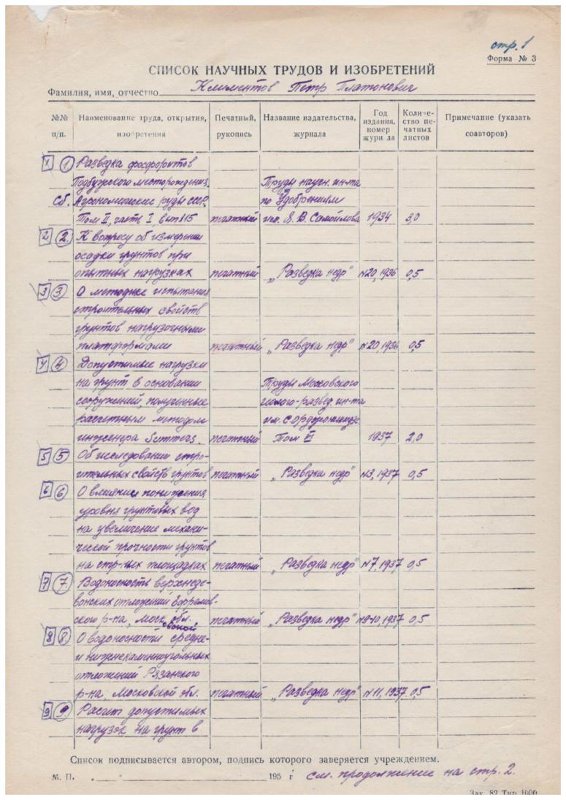 стр. 1
Форма № 3
СПИСОК НАУЧНЫХ ТРУДОВ И ИЗОБРЕТЕНИЙ
Фамилия, имя, отчество Климентов Петр Платонович
№№ п/п. Наименование труда, открытия, изобретения Печатный, рукопись Название издательства, журнала Год издания, номер журнала Количество печатных листов Примечание (указать соавторов)
1 1 Разведка фосфоритов
месторожден. Труды научн. ин-та
Сб. Агрономические руды СССР. по Удобрениям
Том II, часть I, вып 115 печатный им. Я. В. Самойлова 1934 3,0
2 2 К вопросу об измерении
осадки грунтов при
опытных нагрузках печатный „Разведка недр" №20, 1936 0,5
3 3 О методике испытания
строительных свойств
грунтов нагрузочными
платформами печатный „Разведка недр" №20, 1936 0,5
4 4 Допустимые нагрузки
на грунт в основании Труды Московского
сооружений полученные геолого-развед. ин-та
расчетным методом им. С. Орджоникидзе
инженера печатный Том 1937 2,0
5 5 Об исследовании стро-
ительных свойств грунтов печатный „Разведка недр" №3, 1937 0,5
6 6 О влиянии понижения
уровня грунтовых вод
на увеличение механи-
ческой прочности грунтов
на стр-ных площадках печатный „Разведка недр" №7, 1937 0,5
7 7 Водоносность верхнеде-
вонских отложений Ефремов-
ского р-на, Моск. обл. печатный „Разведка недр" 1937 0,5
8 8 О водоносности средне-
и нижнекаменноугольных
отложений Рязанского
р-на Московской обл. печатный „Разведка недр" №11, 1937 0,5
9 9 Расчет допустимых
нагрузок на грунт в
Список подписывается автором, подпись которого заверяется учреждением.
М. П. „ " 195 г. см. продолжение на стр. 2.